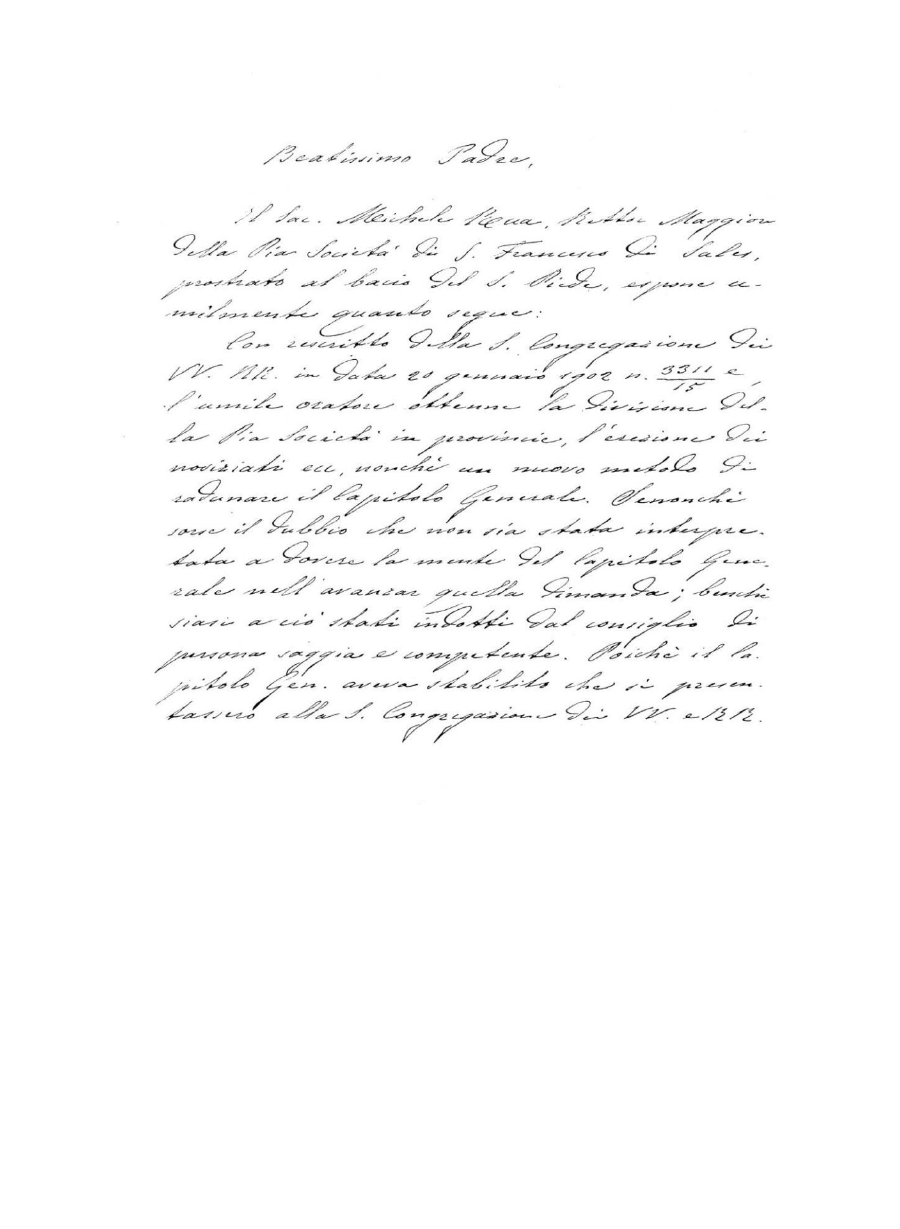 Beatissimo Padre,
Il Sac. Michele Rua, Rettor Maggiore
della Pia Società di S. Francesco di Sales,
prostrato al bacio del S. Piede, espone u-
milmente quanto segue:
Con rescritto della S. Congregazione dei
VV. RR. in data 20 gennaio 1902 n. 3311/15 e,
l'umile oratore ottenne la divisione del-
la Pia Società in provincie, l'erezione dei
noviziati ecc, nonchè un nuovo metodo di
radunare il Capitolo Generale. Senonchè
sorse il dubbio che non sia stata interpre-
tata a dovere la mente del Capitolo Gene-
rale nell'avanzar quella dimanda; benchè
siasi a ciò stati indotti dal consiglio di
persona saggia e competente. Poichè il Ca-
pitolo Gen. aveva stabilito che si presen-
tassero alla S. Congregazione dei VV. e RR.